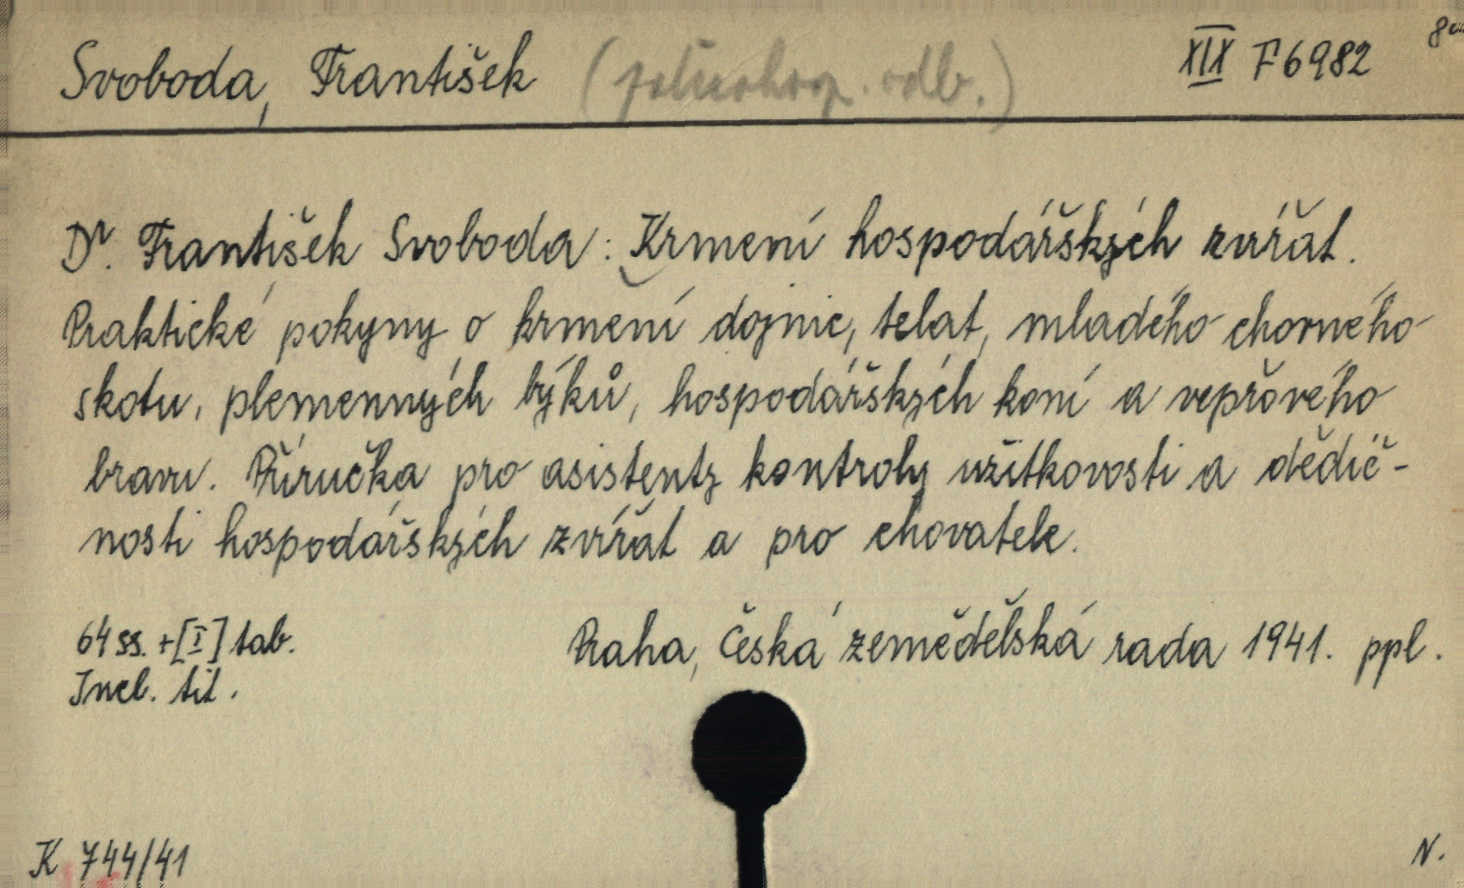 Svoboda, František XIX F 6982
Dr. František Svoboda: Krmení hospodářských zvířat.
Praktické pokyny o krmení dojnic, telat, mladého chovného
skotu, plemenných býků, hospodářských koní a vepřového
bravu. Příručka pro asistenty kontroly užitkovosti a dědič-
nosti hospodářských zvířat a pro chovatele.
64 ss. + [I] tab.
Praha, Česká zemědělská rada 1941. ppl.
Incl. tit.
K 744/41
N.